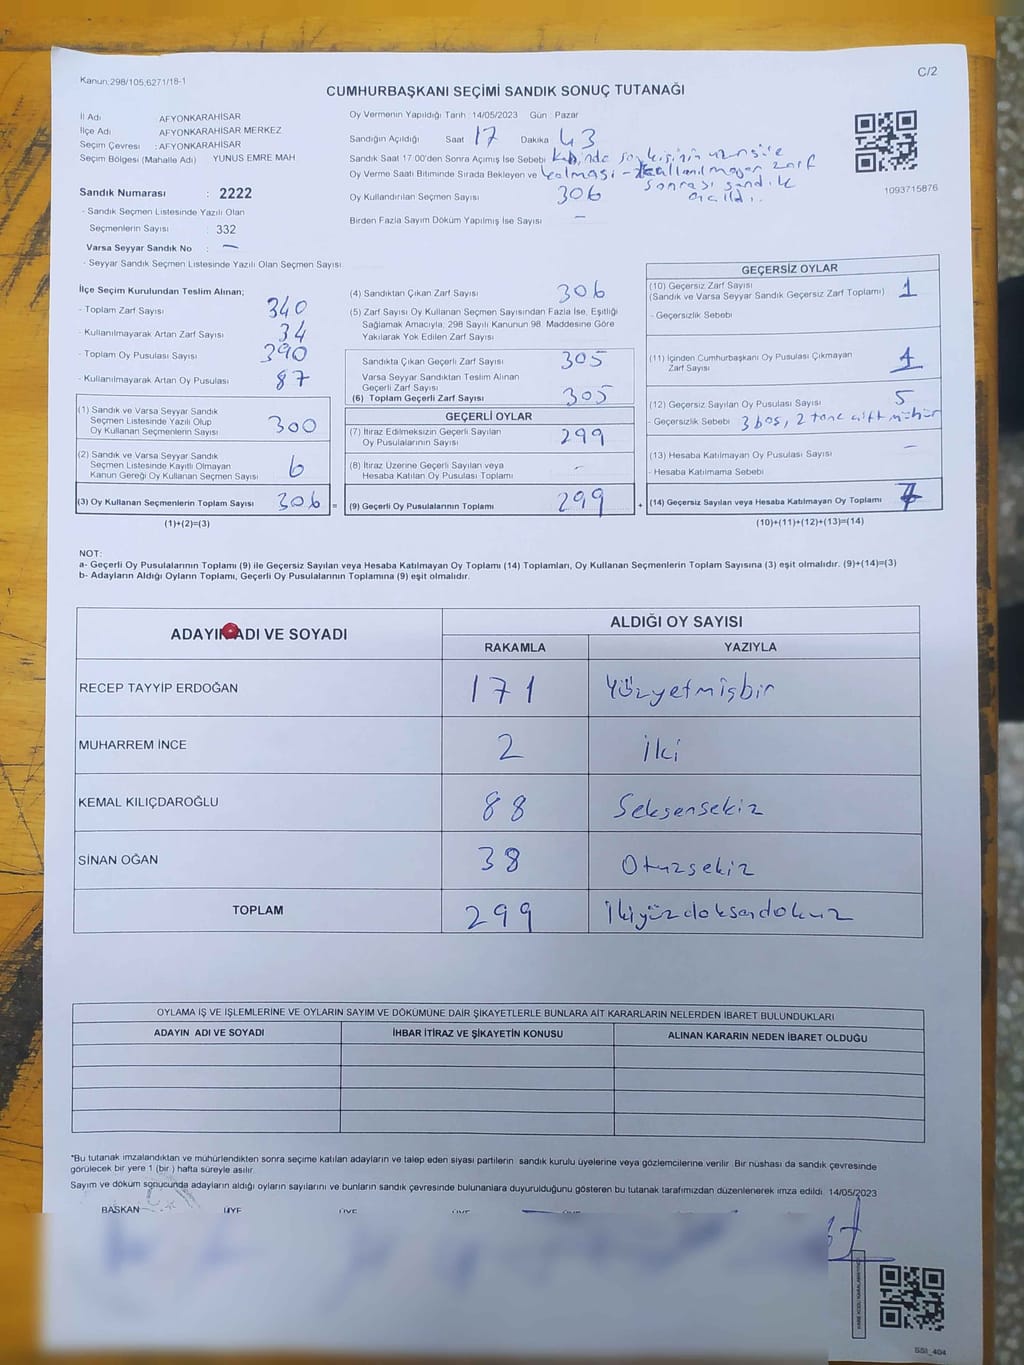 Kanun:298/105;6271/18-1
C/2
CUMHURBAŞKANI SEÇİMİ SANDIK SONUÇ TUTANAĞI
İl Adı AFYONKARAHİSAR
İlçe Adı AFYONKARAHİSAR MERKEZ
Seçim Çevresi : AFYONKARAHİSAR
Seçim Bölgesi (Mahalle Adı) YUNUS EMRE MAH
Sandık Numarası : 2222
- Sandık Seçmen Listesinde Yazılı Olan
Seçmenlerin Sayısı : 332
Varsa Seyyar Sandık No : —
- Seyyar Sandık Seçmen Listesinde Yazılı Olan Seçmen Sayısı
Oy Vermenin Yapıldığı Tarih :14/05/2023 Gün : Pazar
Sandığın Açıldığı Saat 17 Dakika 43
Sandık Saat 17:00'den Sonra Açımış İse Sebebi
Oy Verme Saati Bitiminde Sırada Bekleyen ve kalması - zarf
sonrası sandık
açıldı.
Oy Kullandırılan Seçmen Sayısı 306
Birden Fazla Sayım Döküm Yapılmış İse Sayısı —
1093715876
İlçe Seçim Kurulundan Teslim Alınan;
- Toplam Zarf Sayısı 340
- Kullanılmayarak Artan Zarf Sayısı 34
- Toplam Oy Pusulası Sayısı 390
- Kullanılmayarak Artan Oy Pusulası 87
(1) Sandık ve Varsa Seyyar Sandık
Seçmen Listesinde Yazılı Olup
Oy Kullanan Seçmenlerin Sayısı 300
(2) Sandık ve Varsa Seyyar Sandık
Seçmen Listesinde Kayıtlı Olmayan
Kanun Gereği Oy Kullanan Seçmen Sayısı 6
(3) Oy Kullanan Seçmenlerin Toplam Sayısı 306 =
(1)+(2)=(3)
(4) Sandıktan Çıkan Zarf Sayısı 306
(5) Zarf Sayısı Oy Kullanan Seçmen Sayısından Fazla İse, Eşitliği
Sağlamak Amacıyla; 298 Sayılı Kanunun 98. Maddesine Göre
Yakılarak Yok Edilen Zarf Sayısı
Sandıkta Çıkan Geçerli Zarf Sayısı 305
Varsa Seyyar Sandıktan Teslim Alınan
Geçerli Zarf Sayısı
(6) Toplam Geçerli Zarf Sayısı 305
GEÇERLİ OYLAR
(7) İtiraz Edilmeksizin Geçerli Sayılan
Oy Pusulalarının Sayısı 299
(8) İtiraz Üzerine Geçerli Sayılan veya
Hesaba Katılan Oy Pusulası Toplamı -
(9) Geçerli Oy Pusulalarının Toplamı 299 +
GEÇERSİZ OYLAR
(10) Geçersiz Zarf Sayısı
(Sandık ve Varsa Seyyar Sandık Geçersiz Zarf Toplamı) 1
- Geçersizlik Sebebi
(11) İçinden Cumhurbaşkanı Oy Pusulası Çıkmayan
Zarf Sayısı 1
(12) Geçersiz Sayılan Oy Pusulası Sayısı 5
- Geçersizlik Sebebi 3 boş, 2 tane çift mühür
(13) Hesaba Katılmayan Oy Pusulası Sayısı —
- Hesaba Katılmama Sebebi
(14) Geçersiz Sayılan veya Hesaba Katılmayan Oy Toplamı 7
(10)+(11)+(12)+(13)=(14)
NOT:
a- Geçerli Oy Pusulalarının Toplamı (9) ile Geçersiz Sayılan veya Hesaba Katılmayan Oy Toplamı (14) Toplamları, Oy Kullanan Seçmenlerin Toplam Sayısına (3) eşit olmalıdır. (9)+(14)=(3)
b- Adayların Aldığı Oyların Toplamı, Geçerli Oy Pusulalarının Toplamına (9) eşit olmalıdır.
ADAYIN ADI VE SOYADI
ALDIĞI OY SAYISI
RAKAMLA YAZIYLA
RECEP TAYYİP ERDOĞAN 171 Yüzyetmişbir
MUHARREM İNCE 2 İki
KEMAL KILIÇDAROĞLU 88 Seksensekiz
SİNAN OĞAN 38 Otuzsekiz
TOPLAM 299 İkiyüzdoksandokuz
OYLAMA İŞ VE İŞLEMLERİNE VE OYLARIN SAYIM VE DÖKÜMÜNE DAİR ŞİKAYETLERLE BUNLARA AİT KARARLARIN NELERDEN İBARET BULUNDUKLARI
ADAYIN ADI VE SOYADI İHBAR İTİRAZ VE ŞİKAYETİN KONUSU ALINAN KARARIN NEDEN İBARET OLDUĞU
*Bu tutanak imzalandıktan ve mühürlendikten sonra seçime katılan adayların ve talep eden siyasi partilerin sandık kurulu üyelerine veya gözlemcilerine verilir. Bir nüshası da sandık çevresinde
görülecek bir yere 1 (bir ) hafta süreyle asılır.
Sayım ve döküm sonucunda adayların aldığı oyların sayılarını ve bunların sandık çevresinde bulunanlara duyurulduğunu gösteren bu tutanak tarafımızdan düzenlenerek imza edildi. 14/05/2023
BAŞKAN ÜYE ÜYE ÜYE
SSI_404